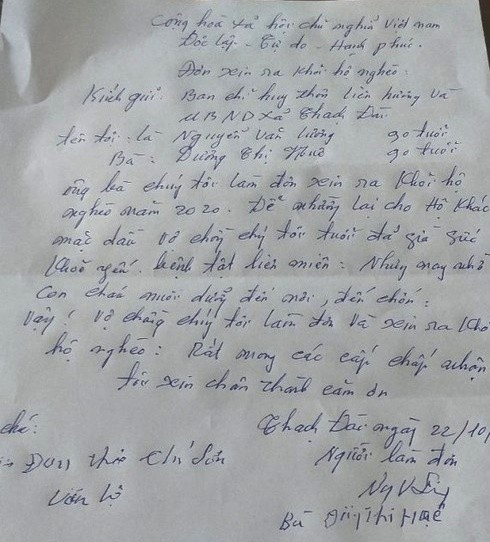 Cộng hoà xã hội chủ nghĩa Việt nam
Độc lập - Tự do - Hạnh phúc.
Đơn xin ra khỏi hộ nghèo.
Kính gửi. Ban chỉ huy thôn liên hương và
UBND xã Thạch Đài.
tên tôi: là Nguyễn Văn Lương 90 tuổi
Bà: Dương Thị Huê 90 tuổi
ông bà chúng tôi làm đơn xin ra khỏi hộ
nghèo năm 2020. Để nhường lại cho Hộ khác
mặc dầu vợ chồng chúng tôi tuổi đã già sức
khoẻ yếu. bệnh tật liên miên: Nhưng nay nhờ
Con cháu nuôi dưỡng đến nơi, đến chốn:
Vậy! Vợ chồng chúng tôi làm đơn và xin ra khỏ
hộ nghèo: Rất mong các cấp chấp nhận
tôi xin chân thành cảm ơn
Thạch Đài ngày 22/10/
Người làm đơn
Đơn
Bà Thị Huệ